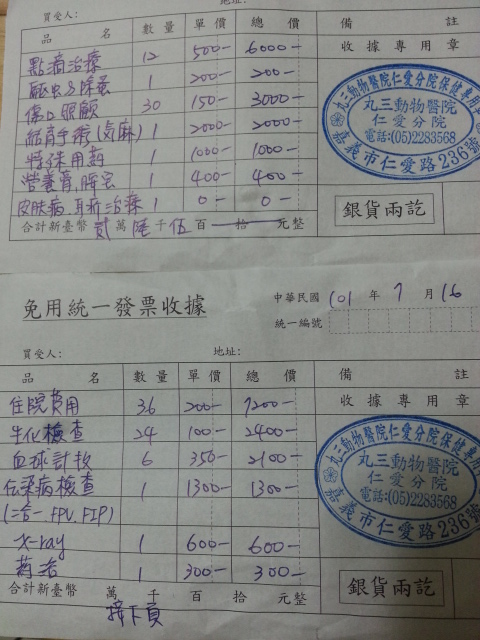 買受人： 地址：
品 名 數量 單價 總價 備 註
點滴治療 12 500- 6000-
驅虫&除蚤 1 200- 200-
傷口照顧 30 150- 3000-
結育手術(氣麻) 1 2000- 2000-
特殊用药 1 1000- 1000-
營養膏.罐 1 400- 400-
皮膚病.耳疥治療 1 0- 0-
收據專用章
丸三動物醫院仁愛分院保健專用
丸三動物醫院
仁愛分院
電話:(05)2283568
嘉義市仁愛路236號
銀貨兩訖
合計新臺幣 貳 萬 陸 千 伍 百 拾 元整
免用統一發票收據
中華民國 101 年 7 月 16
統一編號
買受人： 地址：
品 名 數量 單價 總價 備 註
住院費用 36 200- 7200-
生化檢查 24 100- 2400-
血球計数 6 350- 2100-
傳染病檢查 1 1300- 1300-
(二合一 FPV, FIP)
x-ray 1 600- 600-
葯浴 1 300- 300-
收據專用章
丸三動物醫院仁愛分院保健專用
丸三動物醫院
仁愛分院
電話:(05)2283568
嘉義市仁愛路236號
銀貨兩訖
合計新臺幣 萬 千 百 拾 元整
接下頁